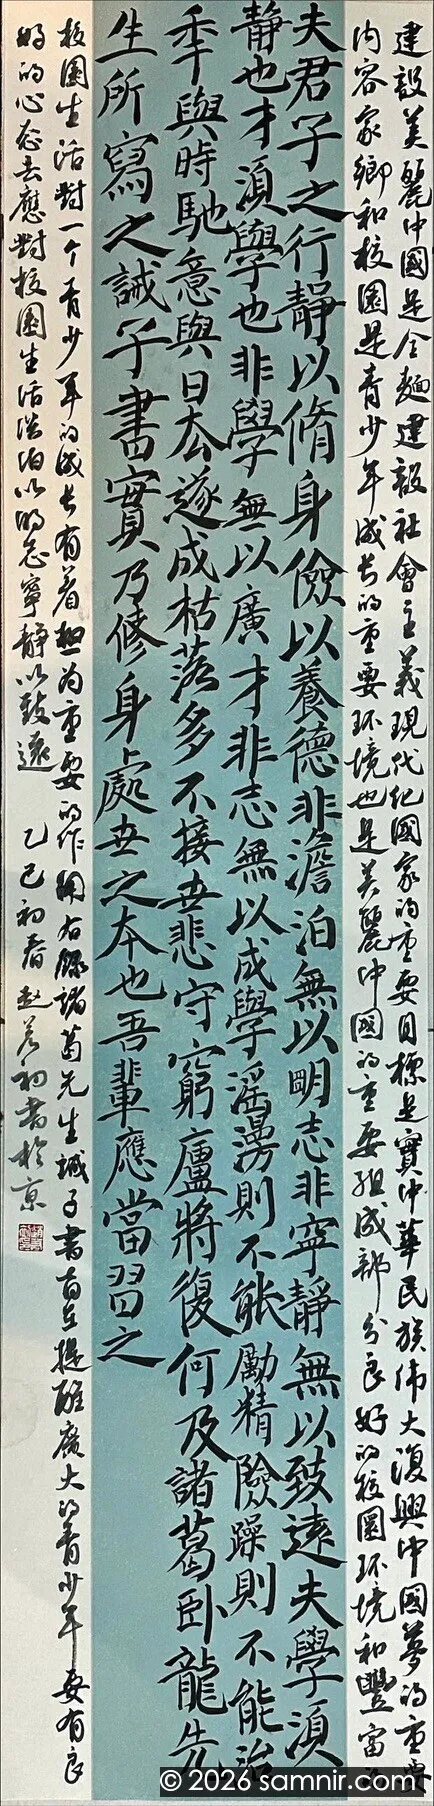 建設美麗中國是全麵建設社會主義現代化國家的重要目標是實中華民族偉大復興中國夢的重要
内容家鄉和校園是青少年成长的重要环境也是美麗中國的重要组成部分良好的校園环境和豐富
夫君子之行靜以脩身儉以養德非澹泊無以明志非寧靜無以致遠夫學湏
靜也才湏學也非學無以廣才非志無以成學滛漫則不能勵精險躁則不能治
秊與時馳意與日去遂成枯落多不接世悲守窮廬將復何及諸葛卧龍先
生所寫之誡子書實乃修身處世之本也吾輩應當習之
校園生活對一个青少年的成长有着極为重要的作用右錄諸葛先生誡子書旨在提醒廣大的青少年要有良
好的心态去應對校園生活淡泊以明志寧靜以致遠 乙巳初春 趙 初書於京
© 2026 samnir.com